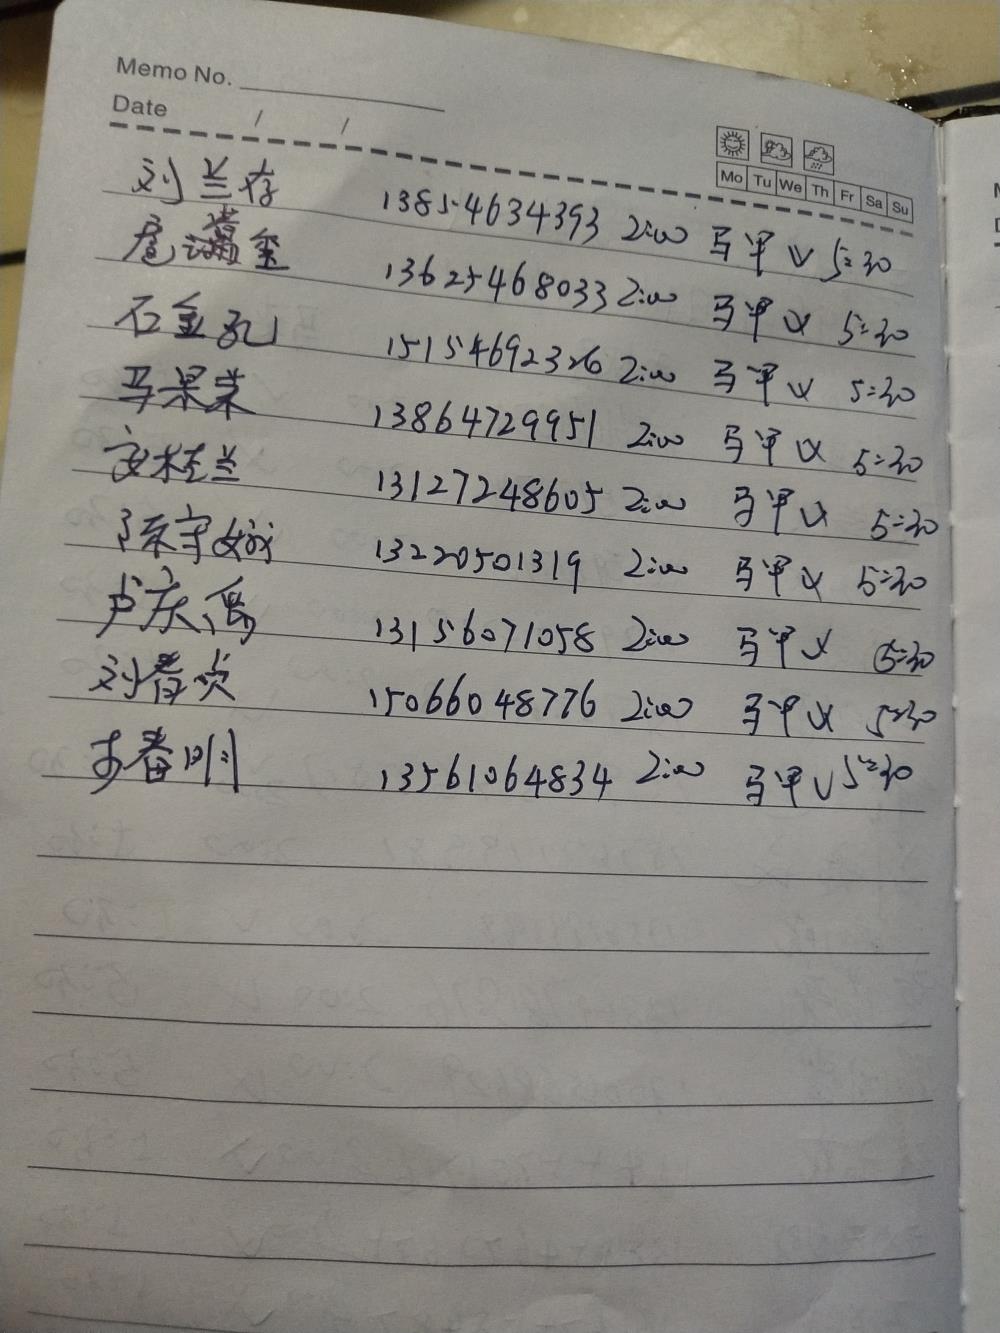 Memo No.
Date / /
Mo Tu We Th Fr Sa Su
刘兰存 13854634393 2:00 马甲 V 5:30
13625468033 2:00 马甲 V 5:30
石金孔 15154692326 2:00 马甲 V 5:30
马景荣 13864729951 2:00 马甲 V 5:30
桂兰 13127248605 2:00 马甲 V 5:30
陈宇 13220501319 2:00 马甲 V 5:30
卢庆 13156071058 2:00 马甲 V 5:30
刘春贞 15066048776 2:00 马甲 V 5:30
春明 13561064834 2:00 马甲 V 5:30